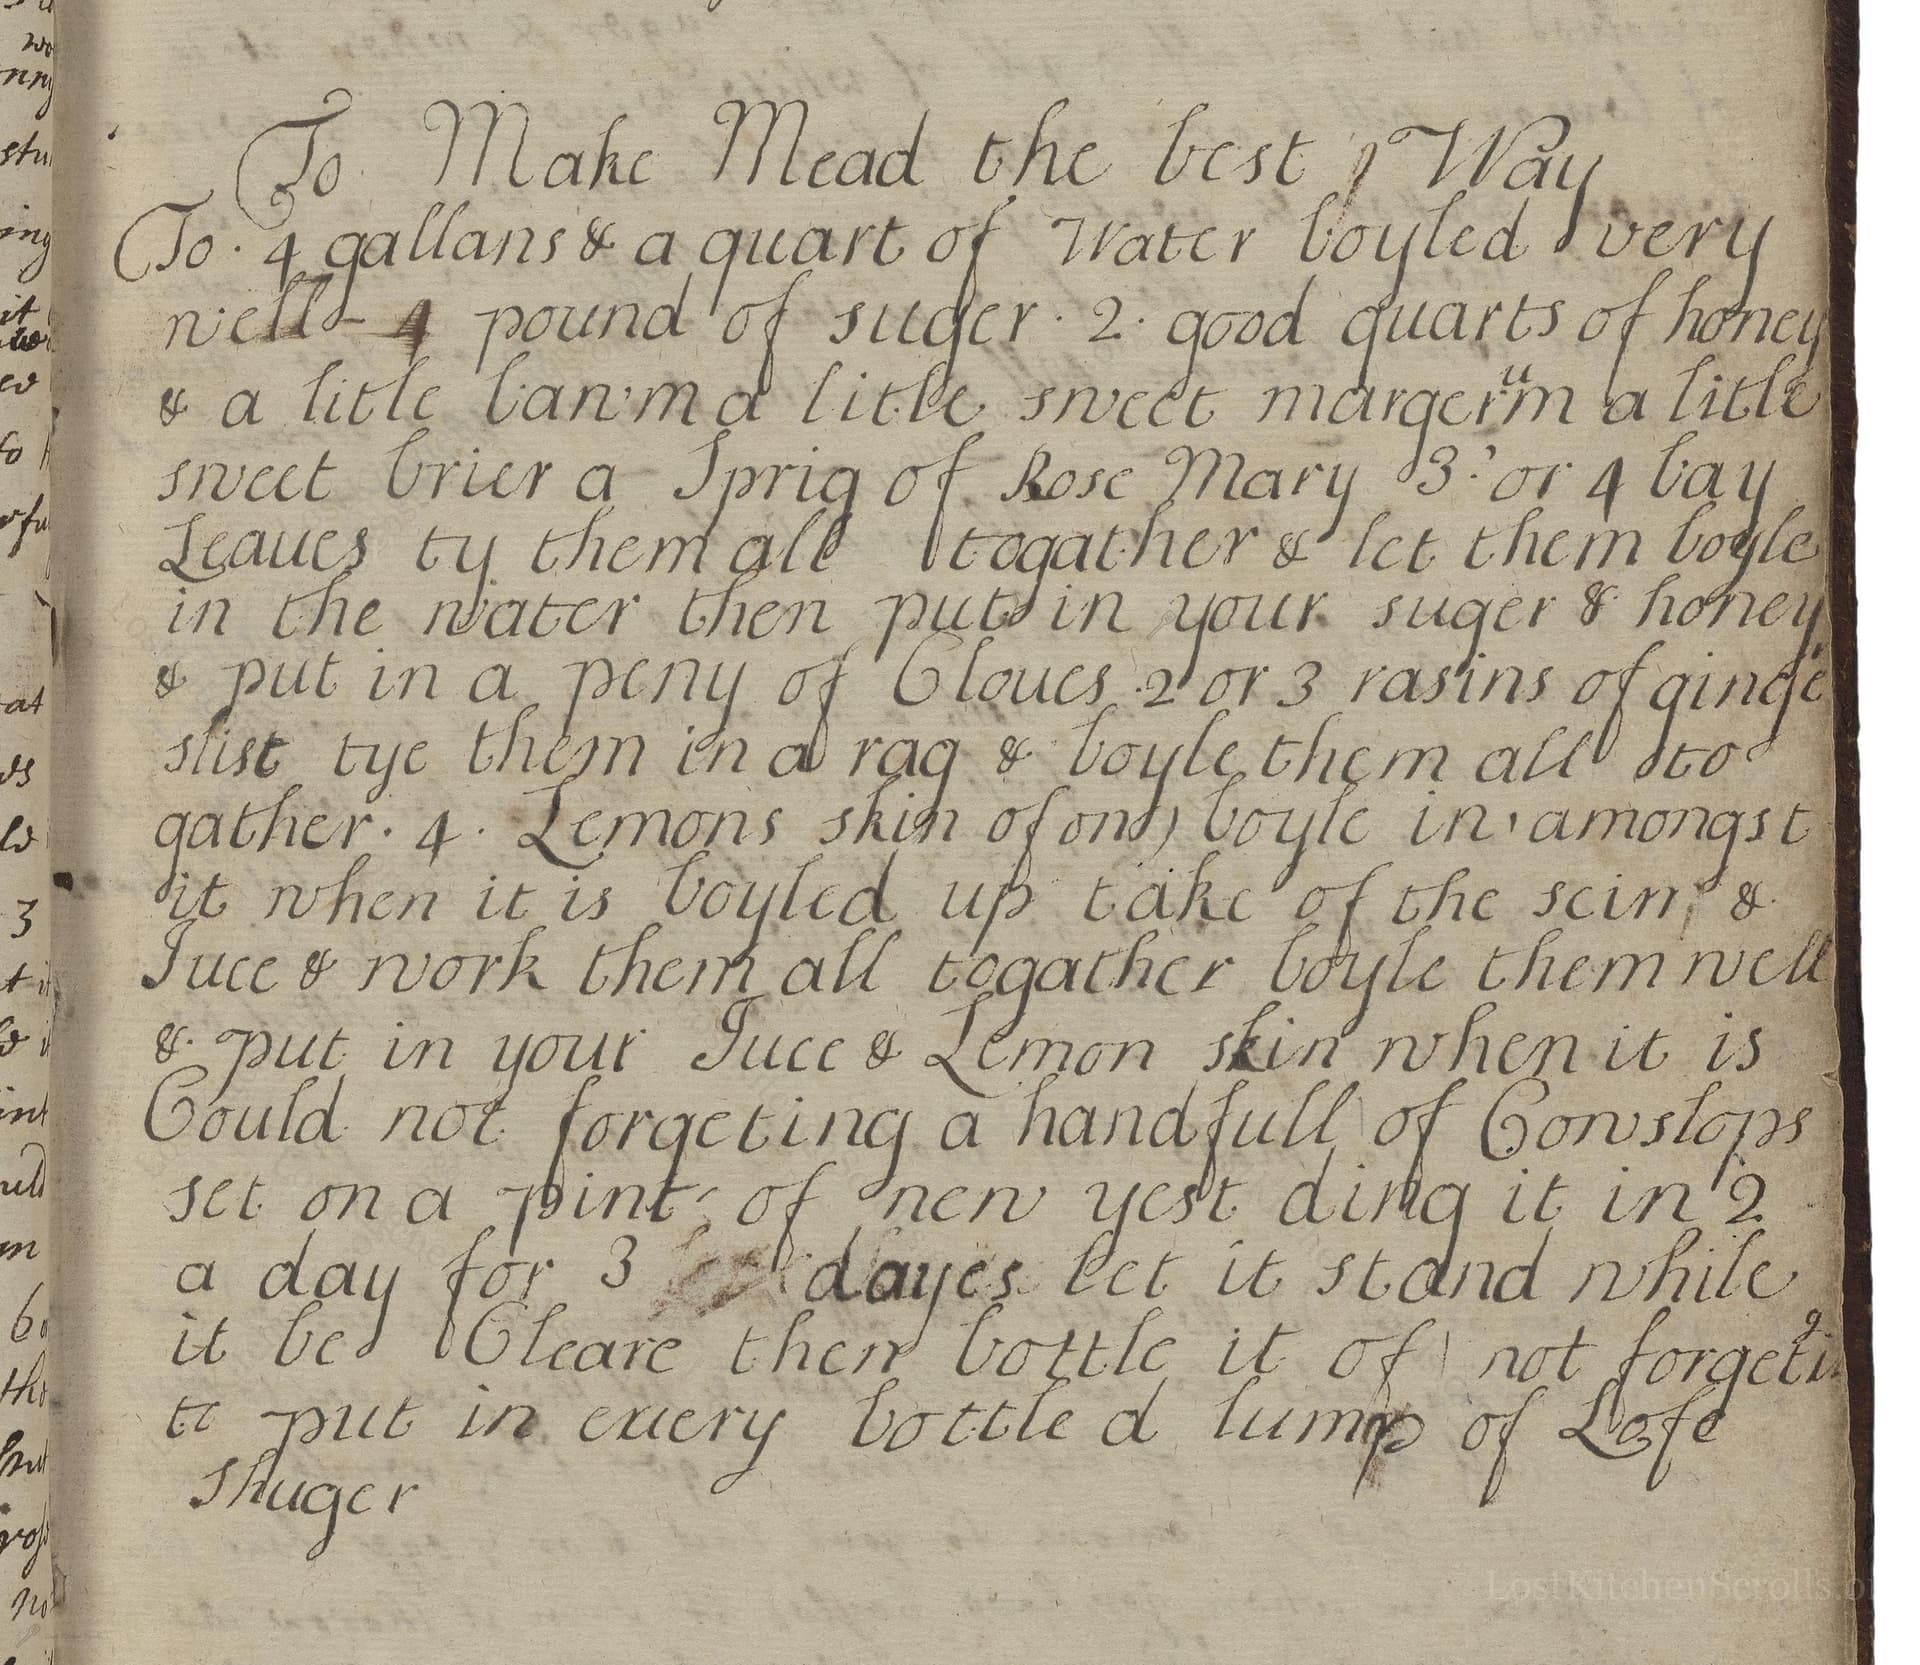 To Make Mead the best Way
To. 4 gallans & a quart of Water boyled very
well 4 pound of suger. 2. good quarts of honey
& a litle a litle sweet margerum a litle
sweet brier a Sprig of Rose Mary 3 or 4 bay
Leaues ty them all togather & let them boyle
in the water then put in your suger & honey
& put in a peny of Cloues 2 or 3 rasins of
slist tye them in a rag & boyle them all to
gather. 4. Lemons skin of boyle in amongst
it when it is boyled up take of the scin &
Juce & work them all togather boyle them well
&. put in your Juce & Lemon skin when it is
Could not forgeting a handfull of Cowslops
set on a pint of new yest ding it in 2
a day for 3 dayes let it stand while
it be Cleare then bottle it of not
to put in euery bottle a lump of Lofe
Shuger
LostKitchenScrolls.